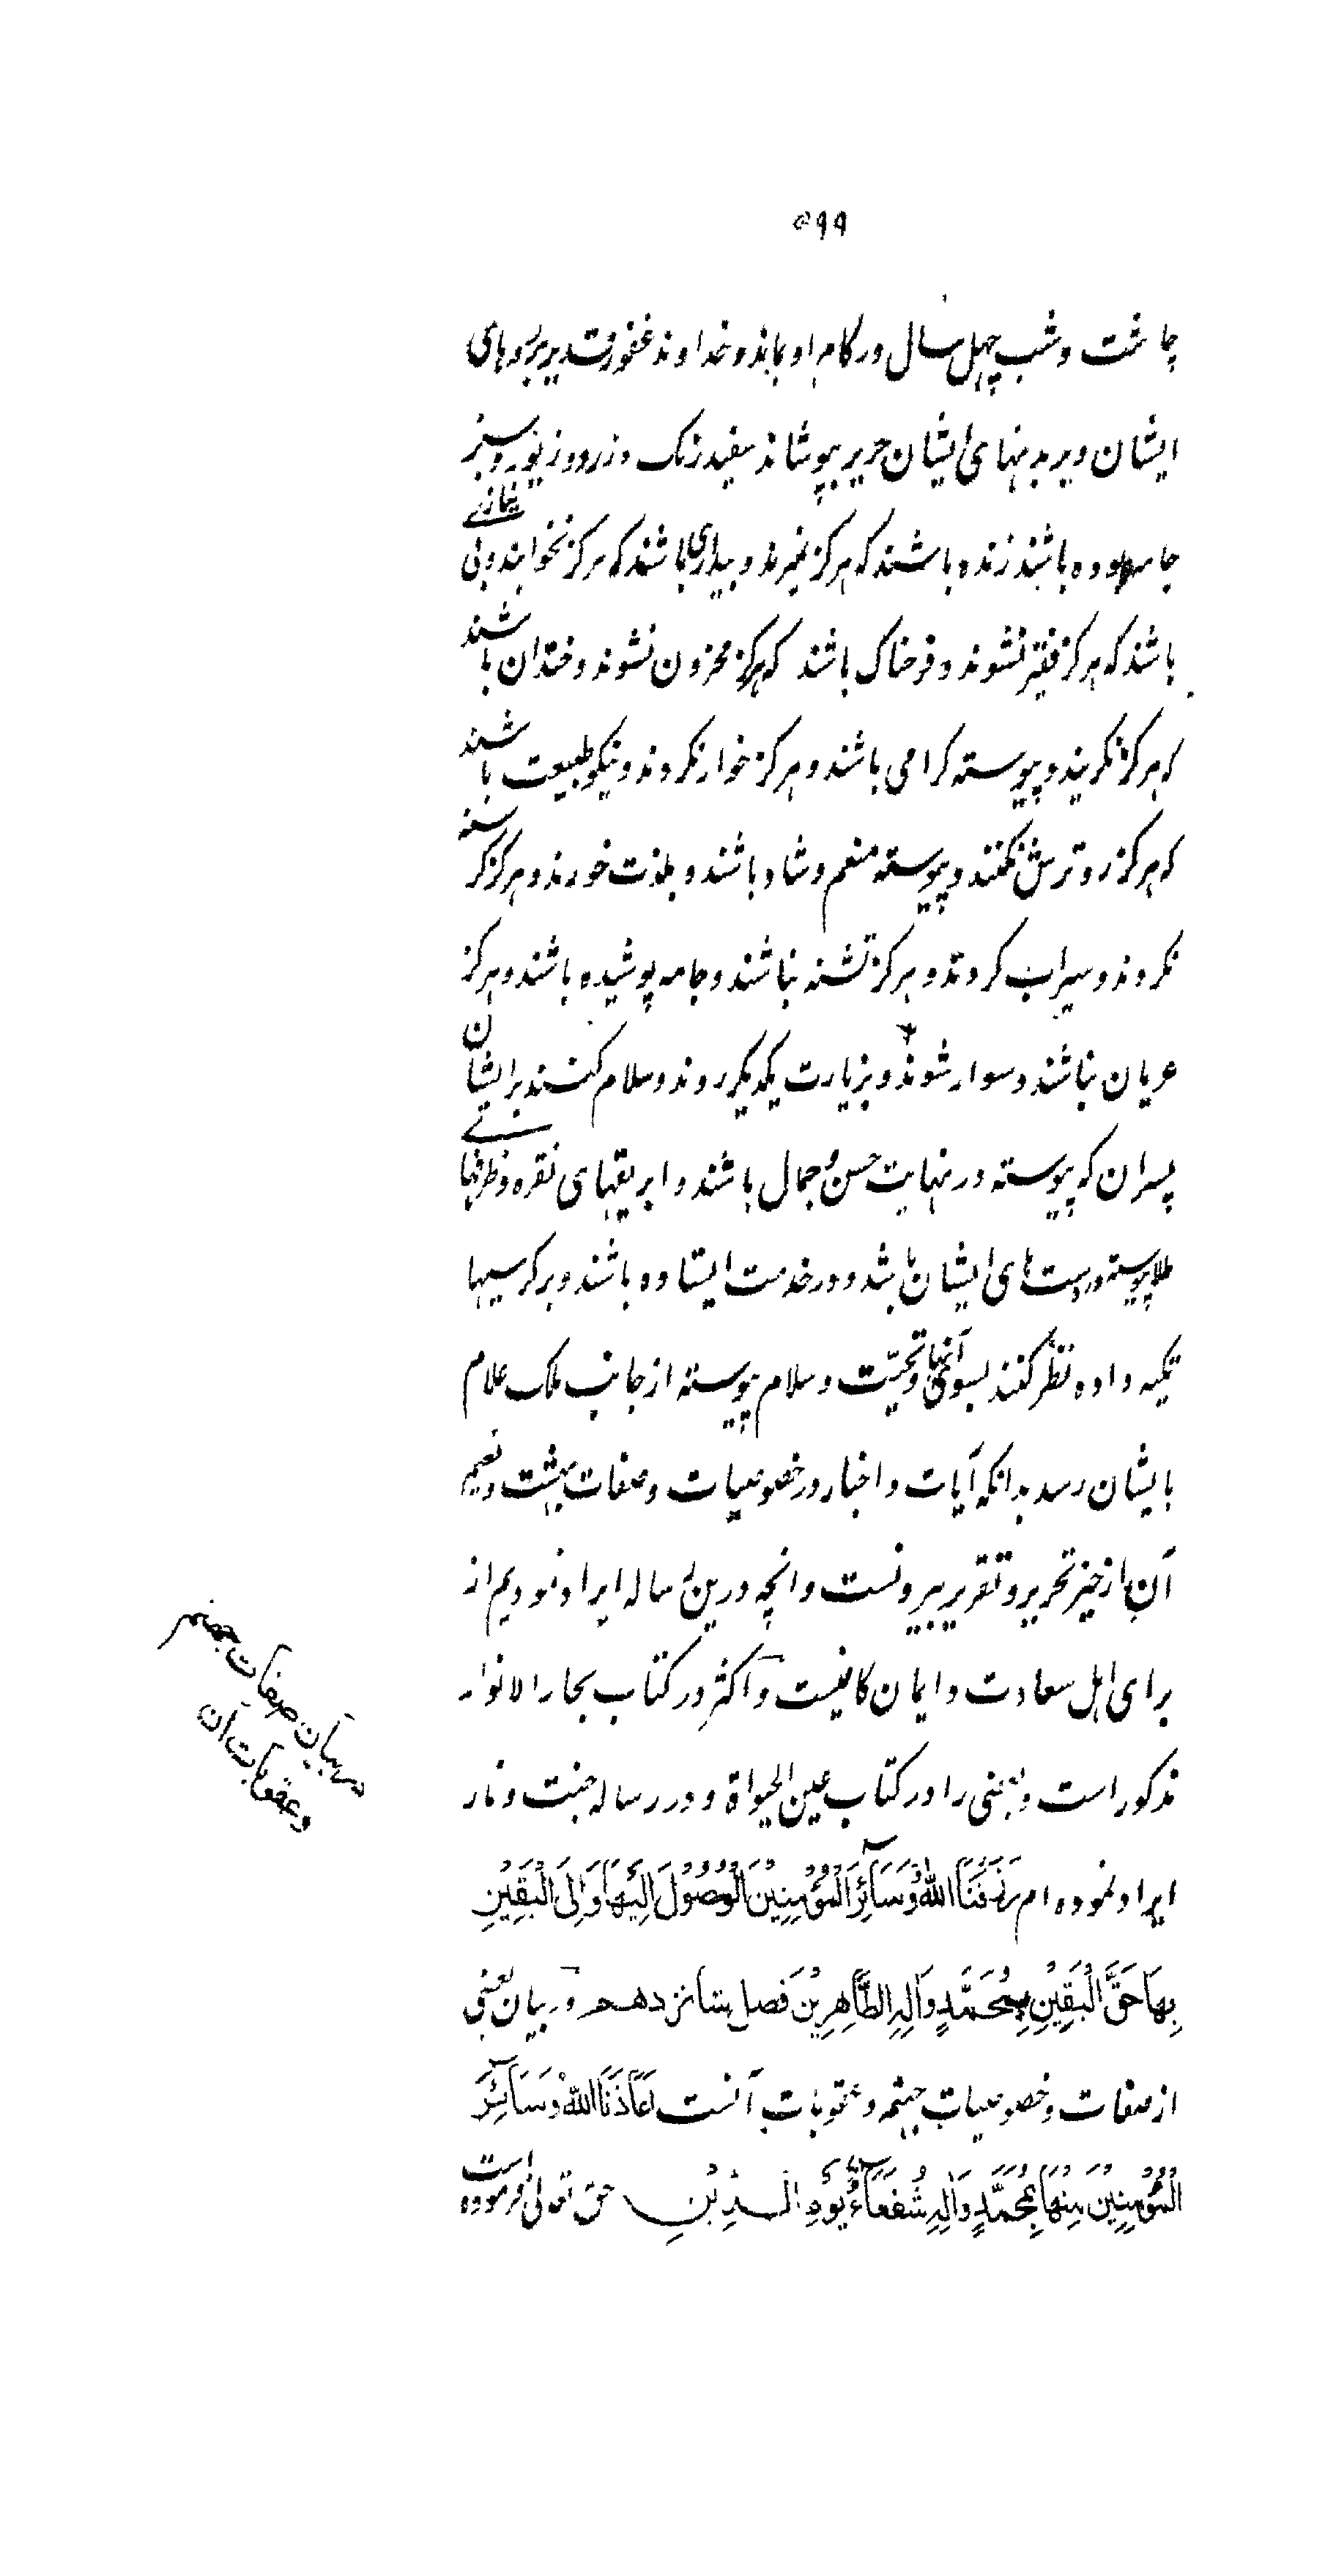 ۵۹۹
چاشت و شب چهل سال در کام او بماند و خداوند غفور قدیر بر روهای
ایشان و بر بدنهای ایشان حریر بپوشاند سفید رنگ و زرد و زیور و سبز
جامها بوده باشند زنده باشند که هرکز نمیرند و بیداری باشند که هرکز نخوابند و بی نیازی
باشند که هرکز فقیر نشوند و فرحناک باشند که هرکز محزون نشوند و خندان باشند
که هرکز نکریند و پیوسته کرامی باشند و هرکز خوار نکردند و نیکو طبیعت باشند
که هرکز رو ترش نکنند و پیوسته منعم و شاد باشند و بلذت خورند و هرکز کرسنه
نکردند و سیراب کردند و هرکز تشنه نباشند و جامه پوشیده باشند و هرکز
عریان نباشند و سوار شوند و بزیارت یکدیکر روند و سلام کنند بر ایشان
پسران که پیوسته در نهایت حسن و جمال باشند و ابریقهای نقره و ظرفهای
طلا پیوسته در دست های ایشان باشد و در خدمت ایستاده باشند و بر کرسیها
تکیه داده نظر کنند بسوی آنها و تحیّت و سلام پیوسته از جانب ملک علام
بایشان رسد بدانکه آیات و اخبار در خصوصیات و صفات بهشت و نعیم
آن از حیز تحریر و تقریر بیرونست و انچه درین رساله ایراد نمودیم از
برای اهل سعادت و ایمان کافیست و اکثر در کتاب بحار الانوار
مذکور است و بعضی را در کتاب عین الحیواة و در رساله جنت و نار
ایراد نموده ام رَزَقَنَا اللّٰهُ وَسَآئِرَ الْمُؤْمِنِیْنَ الْوُصُوْلَ اِلَیْهَا وَاِلَی الْیَقِیْنِ
بِهَا حَقَّ الْیَقِیْنِ بِمُحَمَّدٍ وَاٰلِهِ الطَّاهِرِیْنَ فصل شانزدهم در بیان بعضی
از صفات و خصوصیات جهنم و عقوبات آنست اَعَاذَنَا اللّٰهُ وَسَآئِرَ
الْمُؤْمِنِیْنَ مِنْهَا بِمُحَمَّدٍ وَاٰلِهِ شُفَعَآءُ یَوْمِ الدِّیْنِ حق تعالی فرموده است
در بیان صفات جهنم
و عقوبات آن